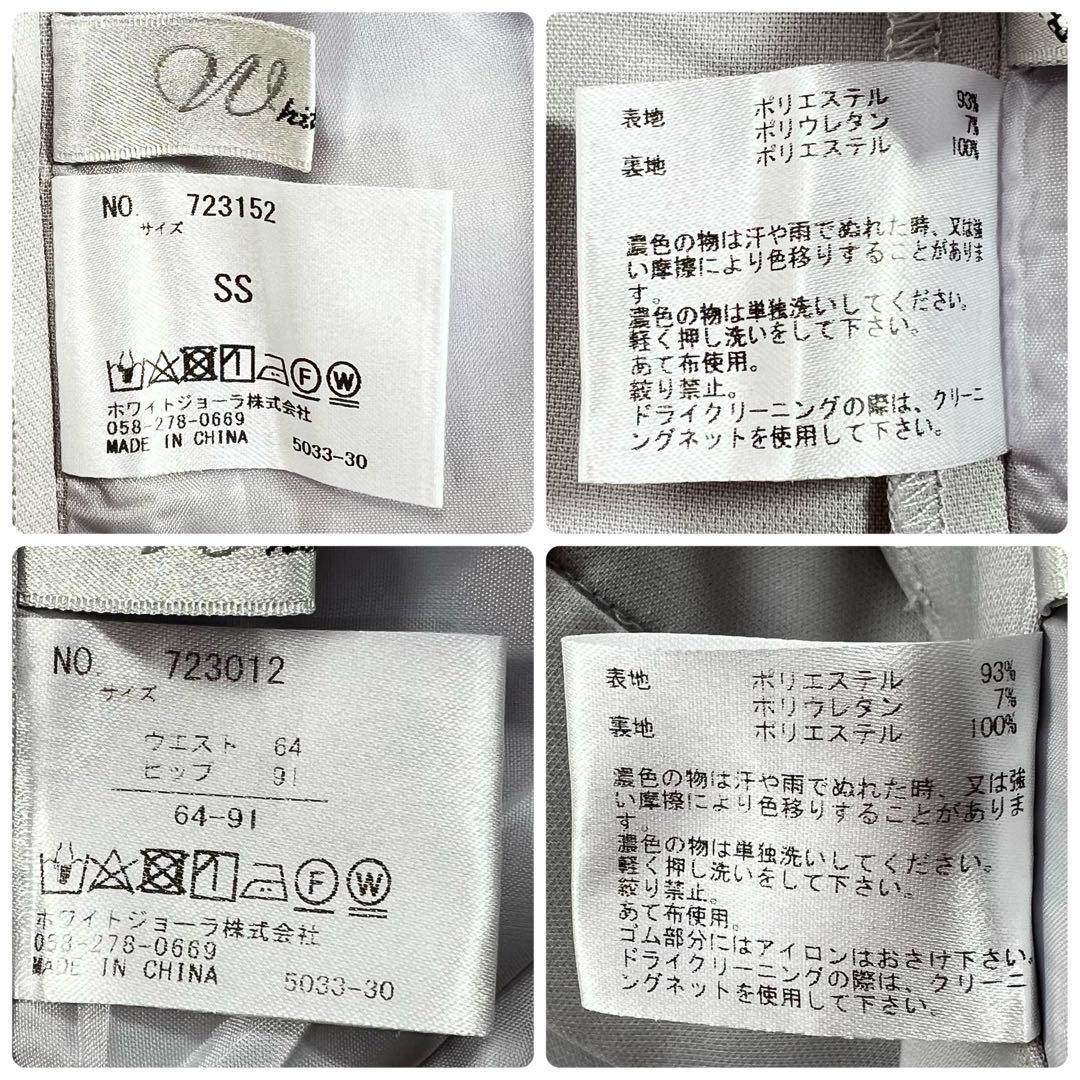 W
NO. 723152
サイズ
SS
F W
ホワイトジョーラ株式会社
058-278-0669
MADE IN CHINA 5033-30
表地 ポリエステル 93%
ポリウレタン 7%
裏地 ポリエステル 100%
濃色の物は汗や雨でぬれた時、又は強
い摩擦により色移りすることがありま
す。
濃色の物は単独洗いしてください。
軽く押し洗いをして下さい。
あて布使用。
絞り禁止。
ドライクリーニングの際は、クリーニ
ングネットを使用して下さい。
NO. 723012
サイズ
ウエスト 64
ヒップ 91
64-91
F W
ホワイトジョーラ株式会社
058-278-0669
MADE IN CHINA 5033-30
表地 ポリエステル 93%
ポリウレタン 7%
裏地 ポリエステル 100%
濃色の物は汗や雨でぬれた時、又は強
い摩擦により色移りすることがありま
す。
濃色の物は単独洗いしてください。
軽く押し洗いをして下さい。
絞り禁止。
あて布使用。
ゴム部分にはアイロンはおさけ下さい。
ドライクリーニングの際は、クリーニ
ングネットを使用して下さい。